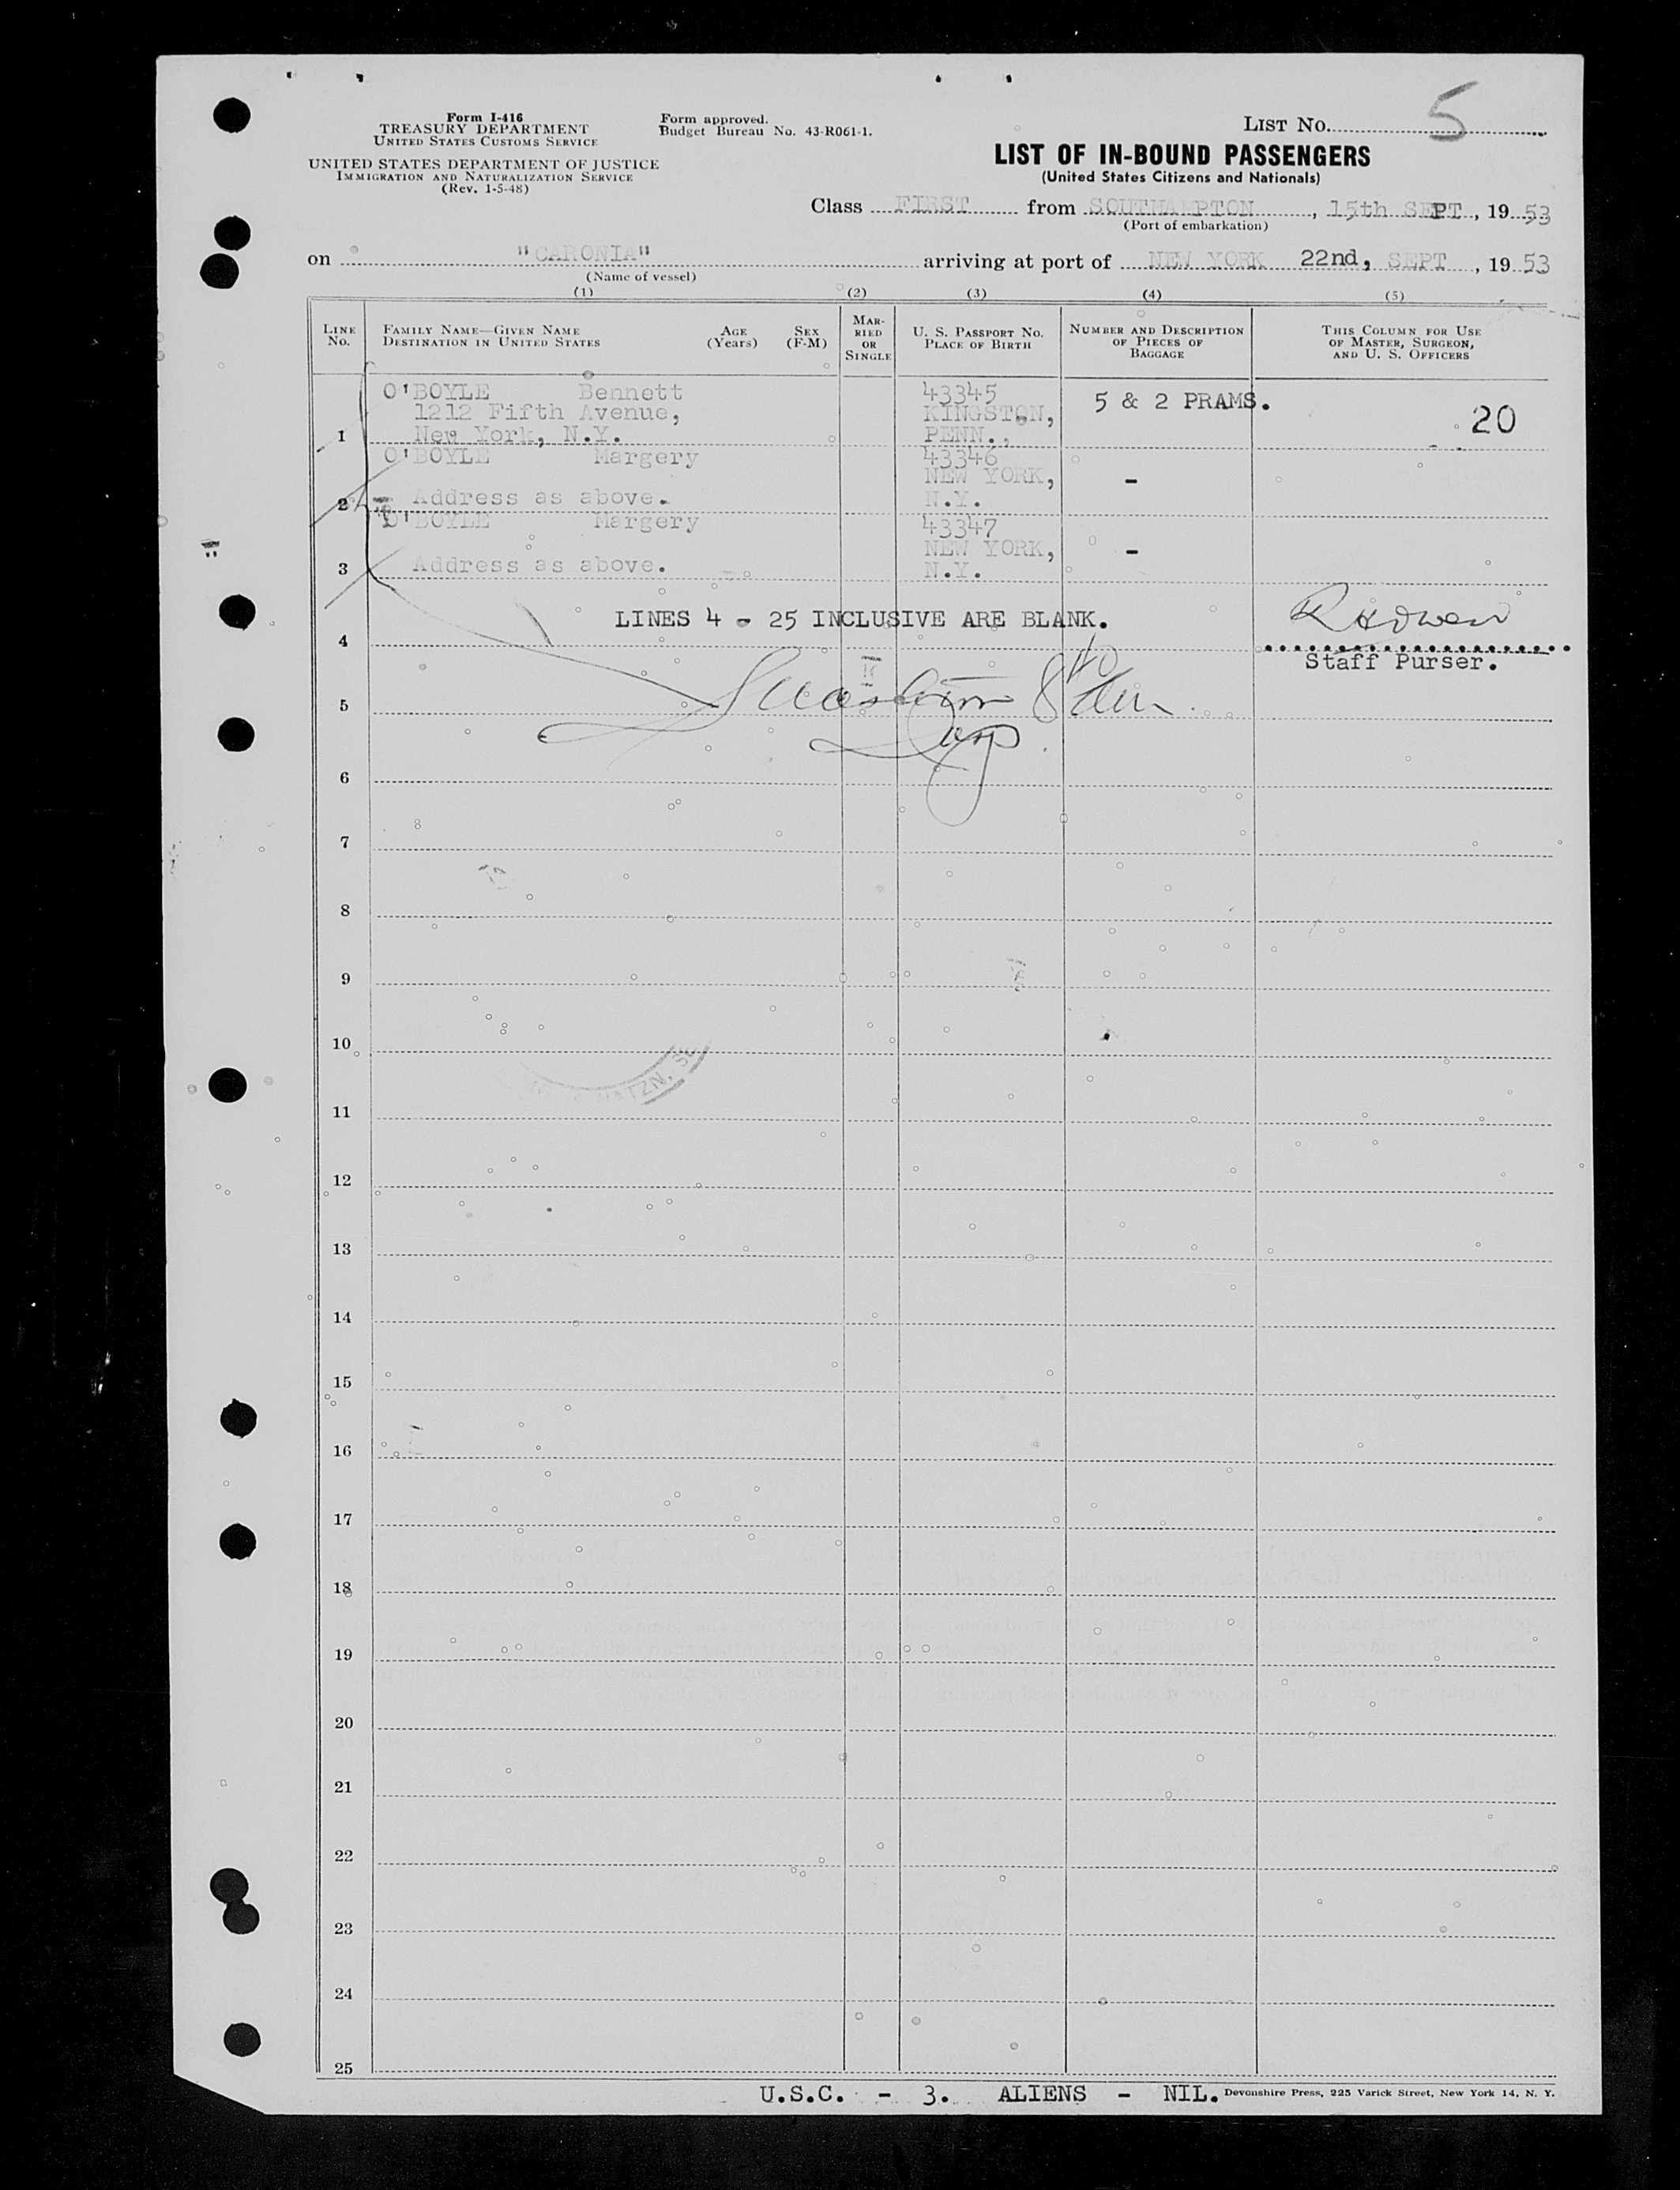 Form I-416
TREASURY DEPARTMENT
UNITED STATES CUSTOMS SERVICE
UNITED STATES DEPARTMENT OF JUSTICE
IMMIGRATION AND NATURALIZATION SERVICE
(Rev. 1-5-48)
Form approved.
Budget Bureau No. 43-R061-1.
LIST No. 5
LIST OF IN-BOUND PASSENGERS
(United States Citizens and Nationals)
Class FIRST from SOUTHAMPTON, 15th SEPT, 19 53
(Port of embarkation)
on "CARONIA" arriving at port of NEW YORK 22nd, SEPT, 19 53
(Name of vessel)
(1) (2) (3) (4) (5)
LINE No.
FAMILY NAME—GIVEN NAME
DESTINATION IN UNITED STATES
AGE (Years)
SEX (F-M)
MARRIED OR SINGLE
U. S. PASSPORT NO.
PLACE OF BIRTH
NUMBER AND DESCRIPTION OF PIECES OF BAGGAGE
THIS COLUMN FOR USE OF MASTER, SURGEON, AND U. S. OFFICERS
O'BOYLE Bennett 43345
1212 Fifth Avenue, KINGSTON, 5 & 2 PRAMS. 20
1 New York, N.Y. PENN.,
O'BOYLE Margery 43346
NEW YORK, -
2 Address as above. N.Y.
O'BOYLE Margery 43347
NEW YORK, -
3 Address as above. N.Y.
LINES 4 - 25 INCLUSIVE ARE BLANK.
4
Staff Purser.
5
6
7
8
9
10
NATZN. SE
11
12
13
14
15
16
17
18
19
20
21
22
23
24
25
U.S.C. - 3. ALIENS - NIL.
Devonshire Press, 225 Varick Street, New York 14, N. Y.